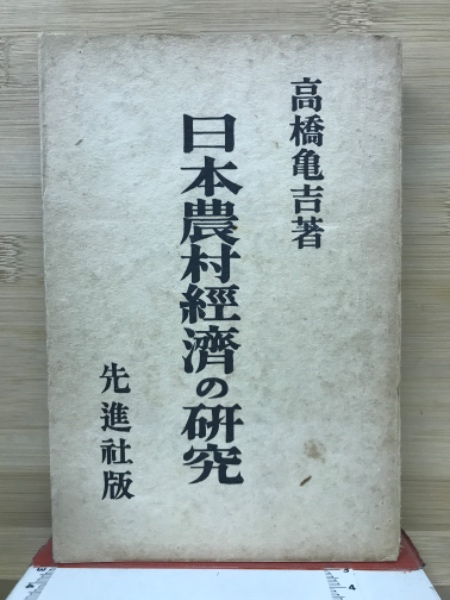 高橋亀吉著
日本農村經濟の研究
先進社版
3
4